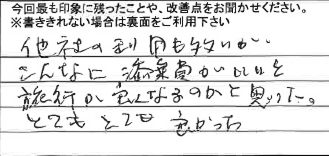 今回最も印象に残ったことや、改善点をお聞かせください。
※書ききれない場合は裏面をご利用下さい
他社の利用も多いが
こんなに添乗員が
旅行が なるのかと思った。
とてもとても良かった